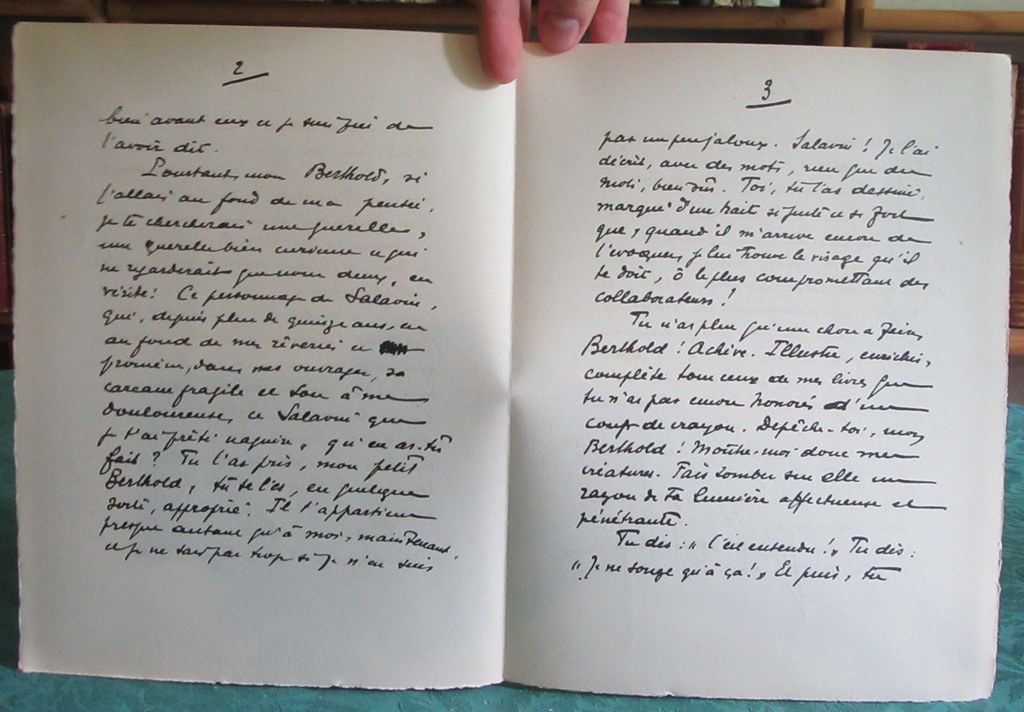 2
bien avant eux et je suis fier de
l'avoir dit.
Pourtant, mon Berthold, si
j'allais au fond de ma pensée,
je te chercherais une querelle,
une querelle bien curieuse et qui
ne regarderait que nous deux, en
vérité! Ce personnage de Salavin,
qui, depuis plus de quinze ans, en
au fond de mes rêveries et
promène, dans mes ouvrages, sa
carcasse fragile et son âme
douloureuse, ce Salavin que
je t'ai prêté naguère, qu'en as-tu
fait? Tu l'as pris, mon petit
Berthold, tu te l'es, en quelque
sorte, approprié. Il t'appartient
presque autant qu'à moi, maintenant,
et je ne sais pas trop si je n'en suis
3
pas un peu jaloux. Salavin! Je l'ai
décrit, avec des mots, rien que des
mots, bien sûr. Toi, tu l'as dessiné,
marqué d'un trait si juste et si fort
que, quand il m'arrive encore de
l'évoquer, je lui trouve le visage qu'il
te doit, ô le plus compromettant des
collaborateurs!
Tu n'as plus qu'une chose à faire,
Berthold! Achève. Illustre, enrichis,
complète tous ceux de mes livres que
tu n'as pas encore honorés d'un
coup de crayon. Dépêche-toi, mon
Berthold! Montre-moi donc mes
créatures. Fais tomber sur elles un
rayon de ta lumière affectueuse et
pénétrante.
Tu dis: "C'est entendu!" Tu dis:
"Je ne songe qu'à ça!" Et puis, tu